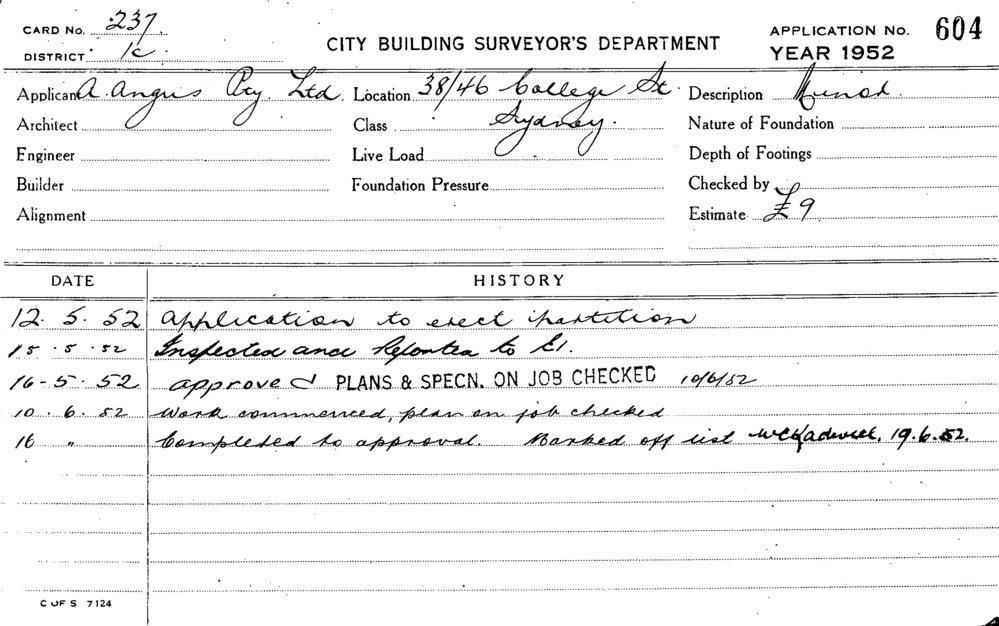 CARD No. 237. CITY BUILDING SURVEYOR'S DEPARTMENT APPLICATION No. 604
DISTRICT 1c. YEAR 1952
Applicant A. Angus Pty. Ltd. Location 38/46 College St. Description
Architect Class Sydney. Nature of Foundation
Engineer Live Load Depth of Footings
Builder Foundation Pressure Checked by
Alignment Estimate £9
DATE HISTORY
12. 5. 52 Application to erect partition
15. 5. 52 Inspected and Reported to E1.
16-5. 52 approved PLANS & SPECN. ON JOB CHECKED 10/6/52
10. 6. 52 Work commenced, plan on job checked
16 " Completed to approval. Marked off list 19.6.52.
C OF S 7124